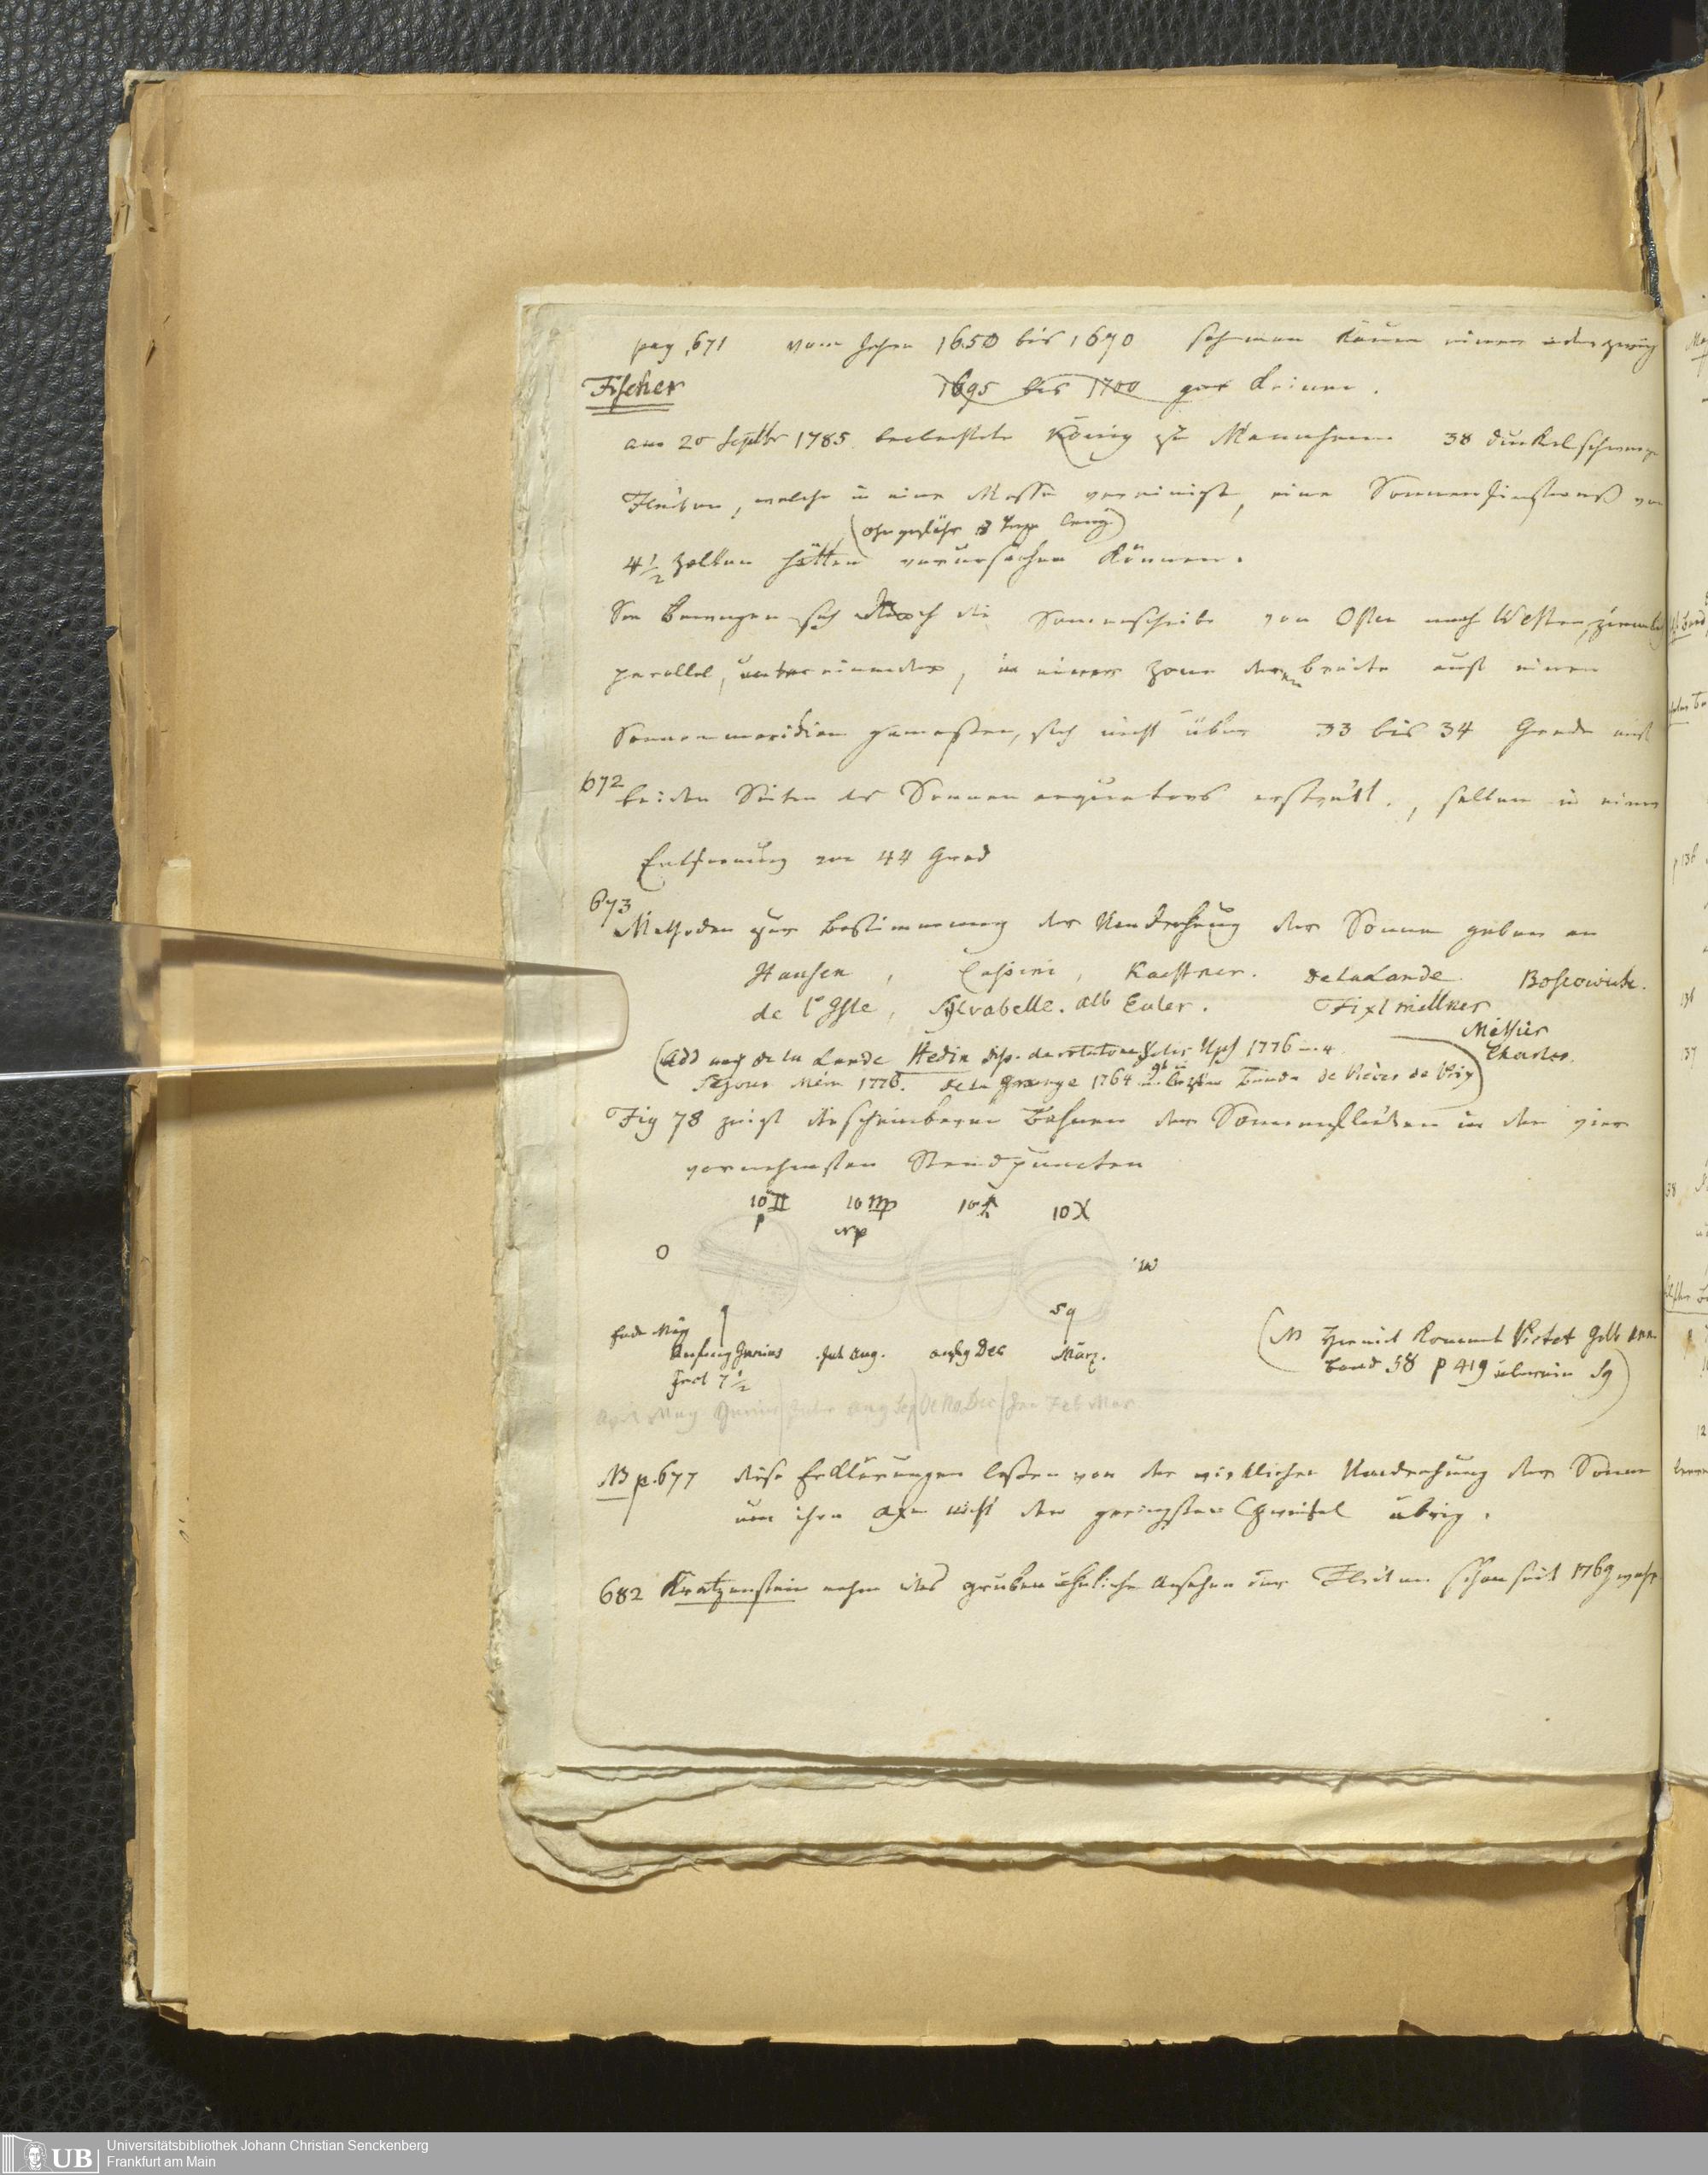 pag. 671 vom Jahre 1650 bis 1670 sah man kaum einen oder zwey
Fischer 1695 bis 1700 gar keinen.
am 20 Septbr 1785 beobachtete König zu Mannheim 38 dunkelschwarze
Flecken, welche in eine Masse vereinigt, eine Sonnenfinsterniß von
(ohngefähr 8 Tage lang)
4 1/2 Zollen hätten verursachen können.
Sie bewegen sich durch die Sonnenscheibe von Osten nach Westen, ziemlich
parallel, unter einander, in einer Zone deren breite auf einen
Sonnenmeridian gemessen, sich nicht über 33 bis 34 Grade auf
672 beiden Seiten des Sonnenaequators erstreckt, selten in einer
Entfernung von 44 Grad
673
Methoden zur Bestimmung der Umdrehung der Sonne geben an
Hausen, Cassini, Kaestner. De la Lande. Boscowich.
de l'Isle, Sylvabelle. Alb Euler. Fixlmillner
Messier
(add noch de la Lande Hedin diss. de rotatione Solis Ups 1776 in 4 Charles.
Sejour Mém 1776. de la Grange 1764
Fig 78 zeigt die scheinbaren Bahnen der Sonnenflecken in den vier
vornehmsten Standpuncten
10 ♊ 10 ♍ 10 ♐ 10 ♓
P NP
O W
S q
Ende May
Anfang Junius Jul Aug. anfg Dec März.
7 1/2
(N hiemit kommt Pictet Gilb Ann
Band 58 p 419 überein Sq)
April May Junius Julii Aug Sep Oct No Dec Jan Feb Mar
NB p. 677 diese Erklärungen lassen von der wirklichen Umdrehung der Sonne
um ihre Axe nicht den geringsten Zweifel übrig.
682 Kratzenstein nahm das grubenähnliche Ansehen der Flecken schon seit 1769 wahr
Universitätsbibliothek Johann Christian Senckenberg
Frankfurt am Main
UB